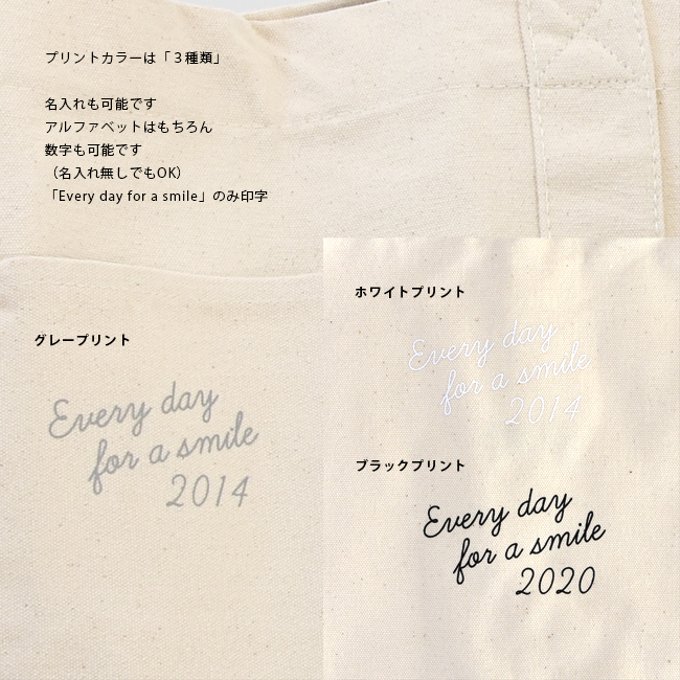 プリントカラーは「３種類」
名入れも可能です
アルファベットはもちろん
数字も可能です
（名入れ無しでもOK）
「Every day for a smile」のみ印字
グレープリント
Every day
for a smile
2014
ホワイトプリント
Every day
for a smile
2014
ブラックプリント
Every day
for a smile
2020